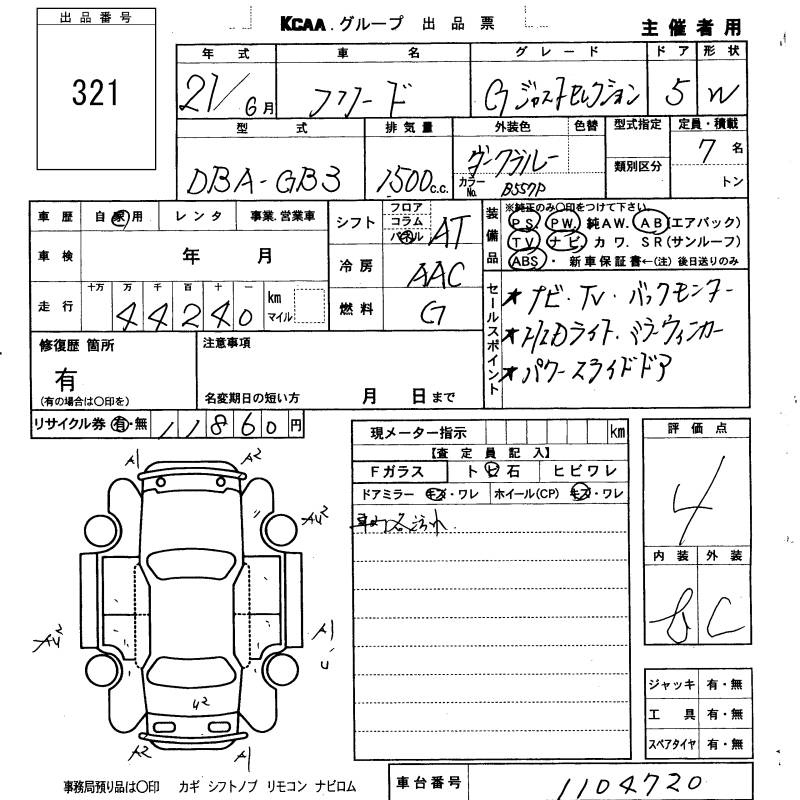 出品番号
321
KCAA.グループ 出品票
主催者用
年式 車名 グレード ドア 形状
21/6月 フリード Gジャストセレクション 5 W
型式 排気量 外装色 色替 型式指定 定員・積載
DBA-GB3 1500c.c. ダークブルー
カラーNo. B557P
類別区分
7名
トン
車歴 自家用 レンタ 事業.営業車
車検 年 月
走行 十万 万 千 百 十 一
44240 km マイル
シフト フロア コラム パネル AT
冷房 AAC
燃料 G
装備品
※純正のみ〇印をつけて下さい。
PS. PW. 純AW. AB(エアバック)
TV ナビ カワ. SR(サンルーフ)
ABS・ 新車保証書←(注)後日送りのみ
セールスポイント
★ナビ・TV・バックモニター
★HIDライト・ミラーウィンカー
★パワースライドドア
修復歴 箇所
有
(有の場合は〇印を)
注意事項
名変期日の短い方 月 日まで
リサイクル券 有・無 11860円
現メーター指示 km
【査定員記入】
Fガラス トビ石 ヒビワレ
ドアミラー キズ・ワレ ホイール(CP) キズ・ワレ
評価点
4
内装 外装
B C
A1 A2
AU2
AU2 A1
U
U2
A2 A1
ジャッキ 有・無
工具 有・無
スペアタイヤ 有・無
事務局預り品は〇印 カギ シフトノブ リモコン ナビロム
車台番号 1104720